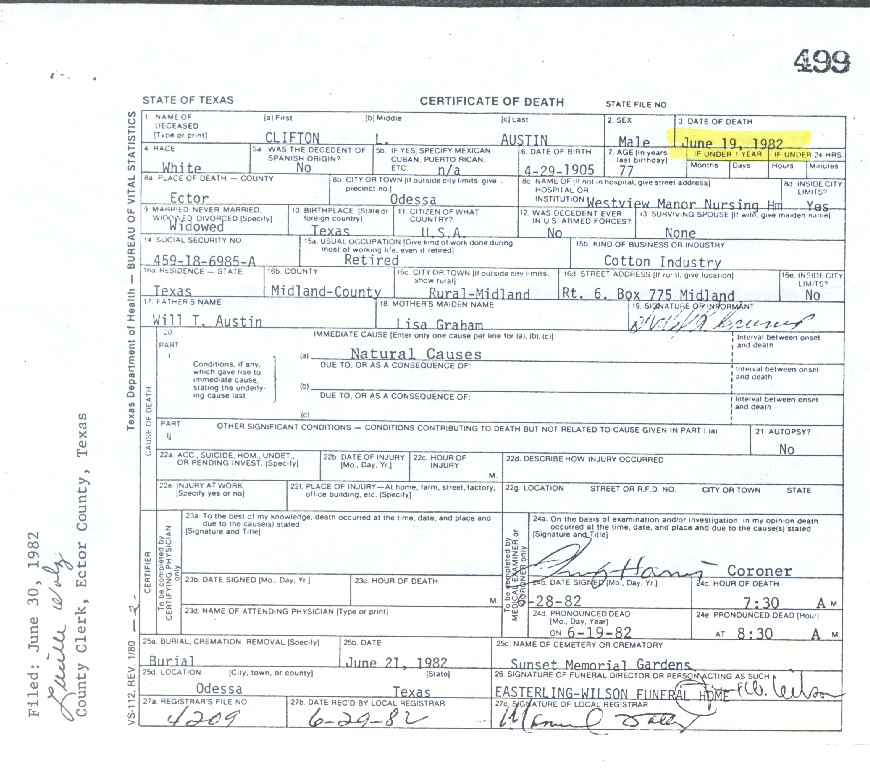 499
STATE OF TEXAS CERTIFICATE OF DEATH STATE FILE NO.
1. NAME OF DECEASED [Type or print] [a] First [b] Middle [c] Last
CLIFTON L. AUSTIN
2. SEX
Male
3. DATE OF DEATH
June 19, 1982
4. RACE
White
5a. WAS THE DECEDENT OF SPANISH ORIGIN?
No
5b. IF YES, SPECIFY MEXICAN CUBAN, PUERTO RICAN, ETC.
n/a
6. DATE OF BIRTH
4-29-1905
7. AGE [In years last birthday]
77
IF UNDER 1 YEAR
Months Days
IF UNDER 24 HRS.
Hours Minutes
8a. PLACE OF DEATH — COUNTY
Ector
8b. CITY OR TOWN [If outside city limits, give precinct no.]
Odessa
8c. NAME OF [If not in hospital, give street address] HOSPITAL OR INSTITUTION
Westview Manor Nursing Hm
8d. INSIDE CITY LIMITS?
Yes
9. MARRIED, NEVER MARRIED, WIDOWED, DIVORCED [Specify]
Widowed
10. BIRTHPLACE [State or foreign country]
Texas
11. CITIZEN OF WHAT COUNTRY?
U.S.A.
12. WAS DECEDENT EVER IN U.S. ARMED FORCES?
No
13. SURVIVING SPOUSE [If wife, give maiden name]
None
14. SOCIAL SECURITY NO.
459-18-6985-A
15a. USUAL OCCUPATION [Give kind of work done during most of working life, even if retired]
Retired
15b. KIND OF BUSINESS OR INDUSTRY
Cotton Industry
16a. RESIDENCE — STATE
Texas
16b. COUNTY
Midland-County
16c. CITY OR TOWN [If outside city limits, show rural]
Rural-Midland
16d. STREET ADDRESS [If rural, give location]
Rt. 6. Box 775 Midland
16e. INSIDE CITY LIMITS?
No
17. FATHER'S NAME
Will T. Austin
18. MOTHER'S MAIDEN NAME
Lisa Graham
19. SIGNATURE OF INFORMANT
20. PART I
IMMEDIATE CAUSE [Enter only one cause per line for (a), (b), (c)]
Conditions, if any, which gave rise to immediate cause, stating the underlying cause last
(a) Natural Causes
Interval between onset and death
DUE TO, OR AS A CONSEQUENCE OF:
(b)
Interval between onset and death
DUE TO, OR AS A CONSEQUENCE OF:
(c)
Interval between onset and death
PART II
OTHER SIGNIFICANT CONDITIONS — CONDITIONS CONTRIBUTING TO DEATH BUT NOT RELATED TO CAUSE GIVEN IN PART I (a)
21. AUTOPSY?
No
22a. ACC., SUICIDE, HOM., UNDET., OR PENDING INVEST. [Specify]
22b. DATE OF INJURY [Mo., Day, Yr.]
22c. HOUR OF INJURY
M.
22d. DESCRIBE HOW INJURY OCCURRED
22e. INJURY AT WORK [Specify yes or no]
22f. PLACE OF INJURY—At home, farm, street, factory, office building, etc. [Specify]
22g. LOCATION STREET OR R.F.D. NO. CITY OR TOWN STATE
CAUSE OF DEATH
CERTIFIER
To be completed by CERTIFYING PHYSICIAN only
23a. To the best of my knowledge, death occurred at the time, date, and place and due to the cause(s) stated
[Signature and Title]
23b. DATE SIGNED [Mo., Day, Yr.]
23c. HOUR OF DEATH
M.
23d. NAME OF ATTENDING PHYSICIAN [Type or print]
To be completed by MEDICAL EXAMINER or CORONER only
24a. On the basis of examination and/or investigation, in my opinion death occurred at the time, date, and place and due to the cause(s) stated
[Signature and Title]
Coroner
24b. DATE SIGNED [Mo., Day, Yr.]
-28-82
24c. HOUR OF DEATH
7:30 A M.
24d. PRONOUNCED DEAD [Mo., Day, Year]
ON 6-19-82
24e. PRONOUNCED DEAD [Hour]
AT 8:30 A M.
25a. BURIAL, CREMATION, REMOVAL [Specify]
Burial
25b. DATE
June 21, 1982
25c. NAME OF CEMETERY OR CREMATORY
Sunset Memorial Gardens
25d. LOCATION [City, town, or county] [State]
Odessa Texas
26. SIGNATURE OF FUNERAL DIRECTOR OR PERSON ACTING AS SUCH
EASTERLING-WILSON FUNERAL HOME Wilson
27a. REGISTRAR'S FILE NO.
4209
27b. DATE REC'D BY LOCAL REGISTRAR
6-29-82
27c. SIGNATURE OF LOCAL REGISTRAR
Texas Department of Health — BUREAU OF VITAL STATISTICS
VS-112, REV. 1/80
Filed: June 30, 1982
County Clerk, Ector County, Texas